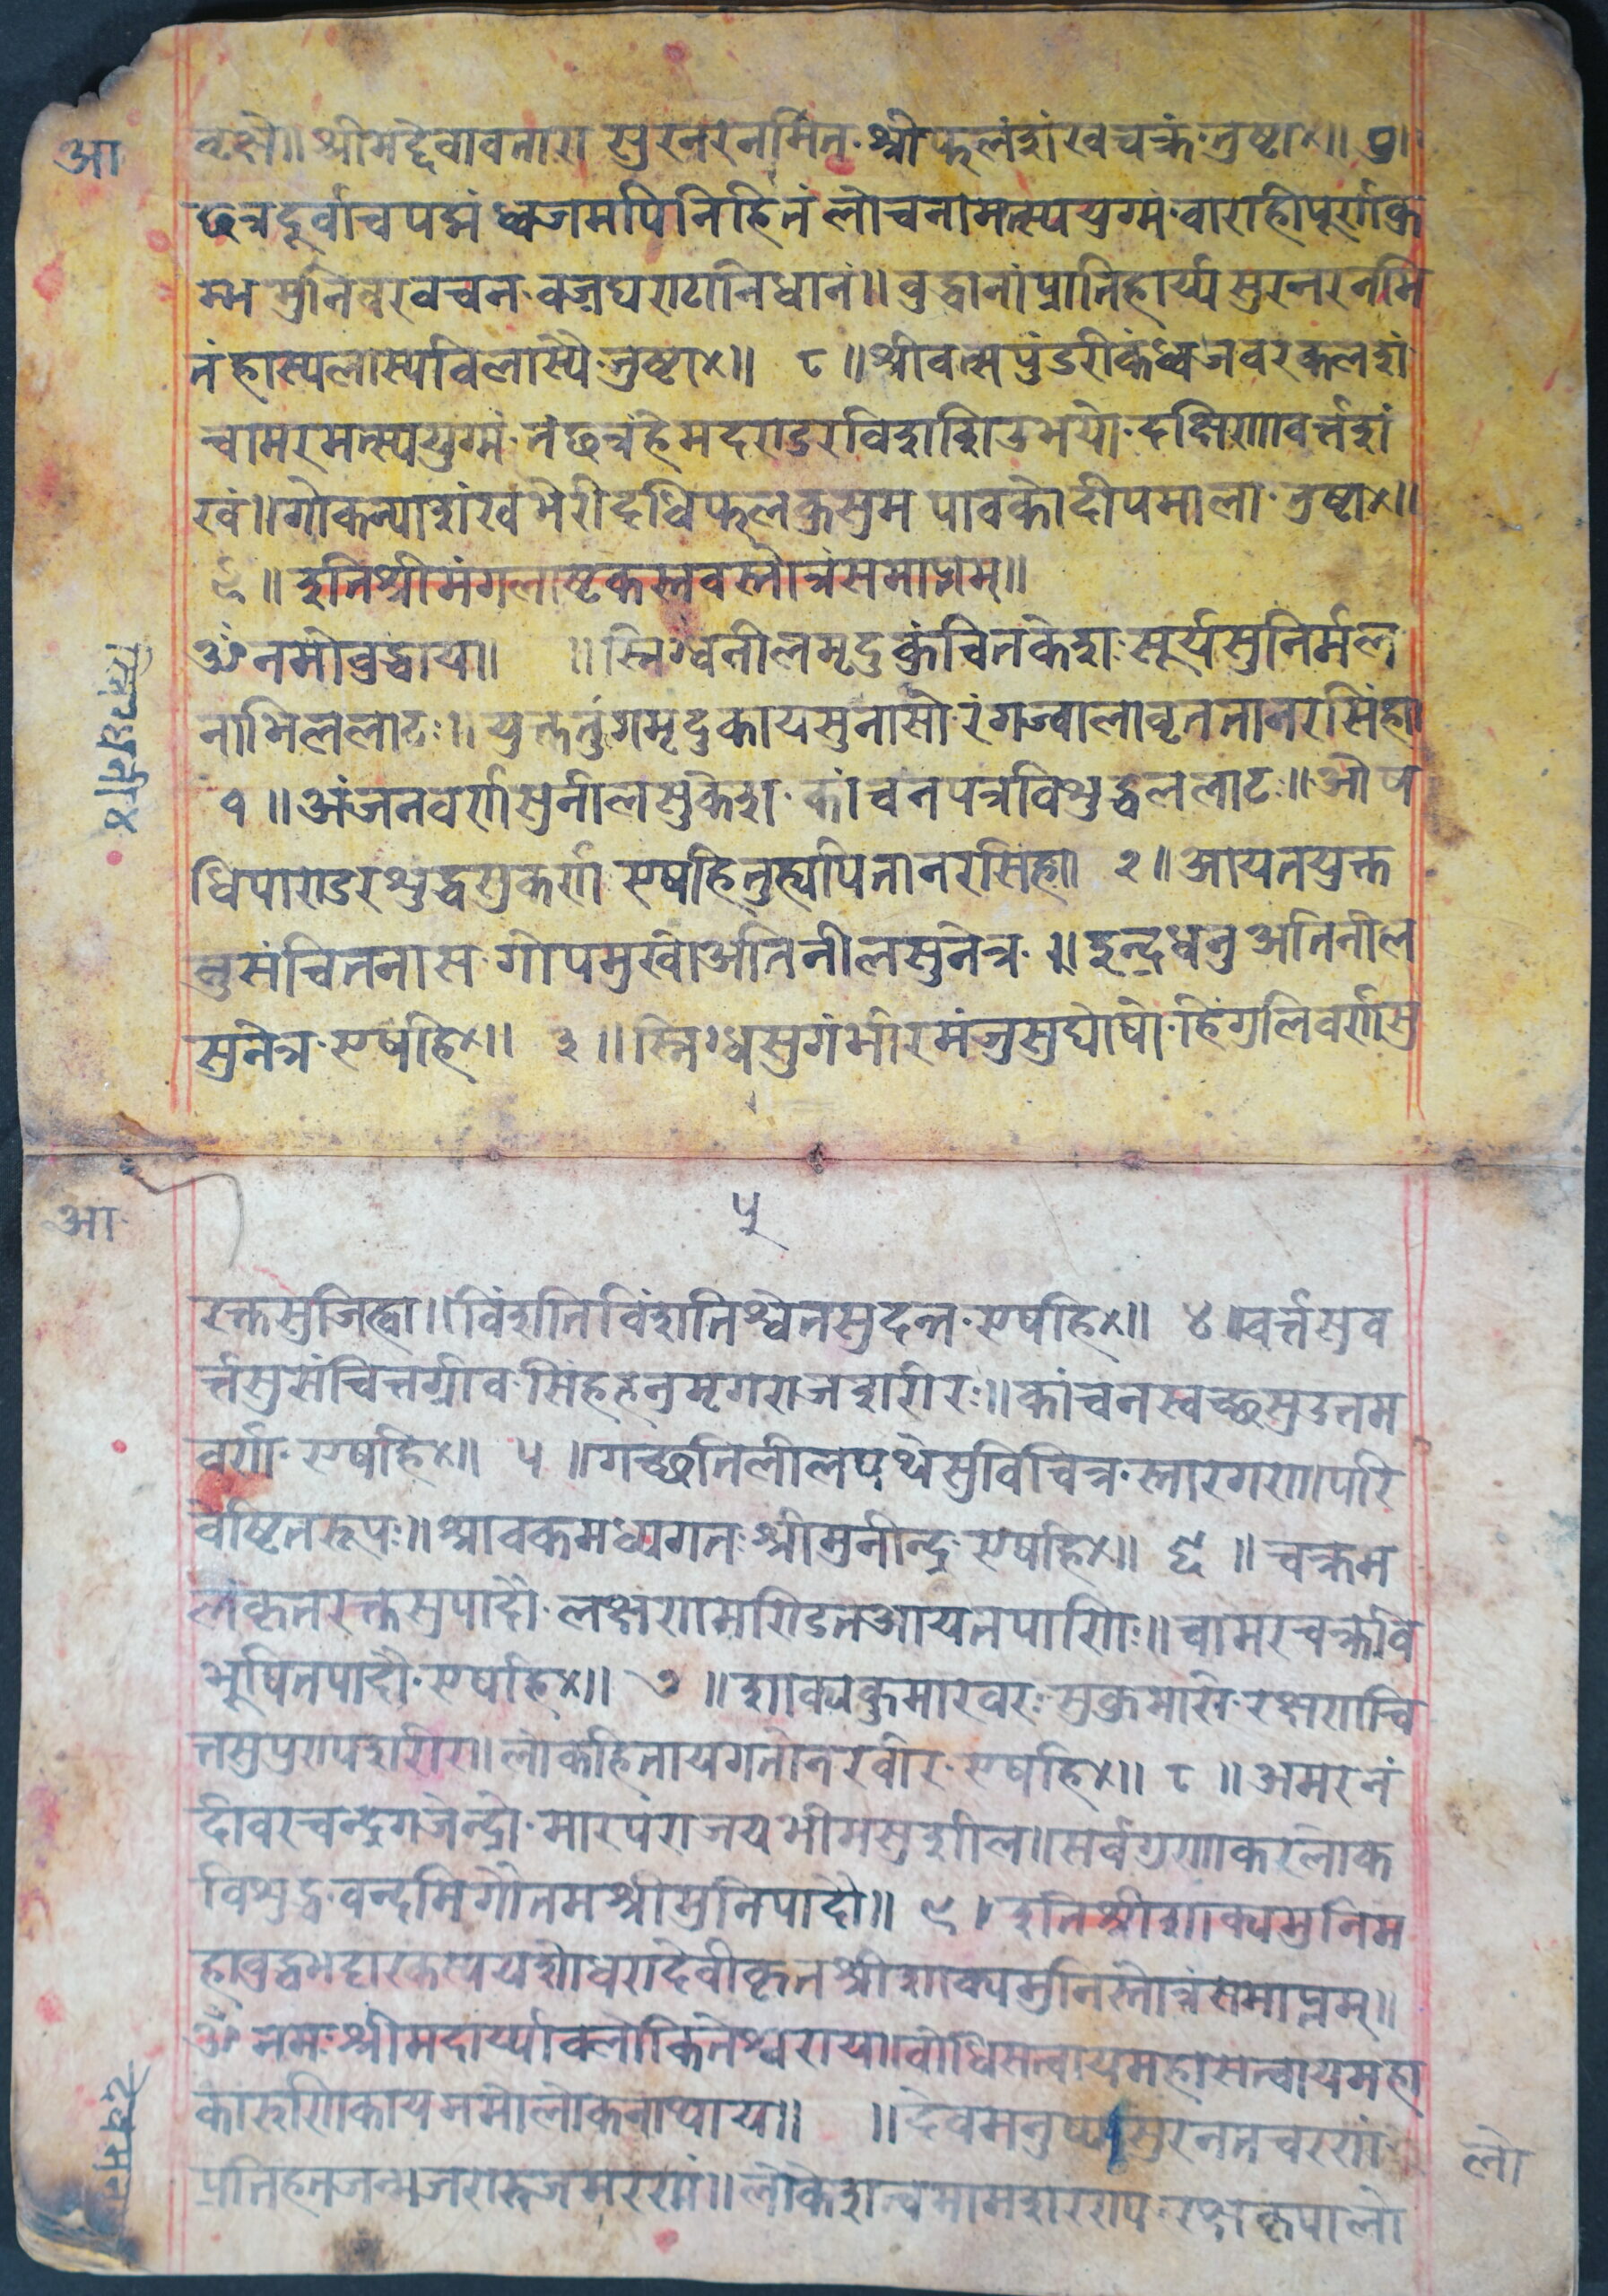 आ
वृक्षो॥ श्रीमद्देवावतारा सुरनरनमित श्रीफलंशंखचक्रं तुष्टा४॥ ७॥
छत्रदूर्वाचपद्मं ध्वजमपिनिहितं लोचनामत्स्ययुग्मं वाराहीपूर्णकु
म्भमुनिवरवचन वज्रघण्टानिधानं॥ वुद्धानांप्रातिहार्य्यसुरनरनमि
तंहास्यलास्येविलास्यै तुष्टा४॥ ८ ॥श्रीवत्सपुंडरीकंध्वजवरकलशं
चामरमत्स्ययुग्मं तंछत्रंहेमदण्डुरविशशिउभयो दक्षिणावर्त्तशं
खं॥गोकन्याशंखभेरीदधिफलकुसुम पावकोदीपमाला तुष्टा४॥
९ ॥ इतिश्रीमंगलाष्टकस्तवस्तोत्रंसमाप्तम्॥
ॐनमोवुद्धाय॥ ॥स्निग्धनीलमृदुकुंचितकेश सूर्यसुनिर्मल
नाभिललाटः॥ युक्ततुंगमृदुकायसुनासो रंगज्वालावृततानरसिंहा
१ ॥अंजनवर्णसुनीलसुकेश कांचनपत्रविशुद्धललाट॥औष
धिपाण्डरशुद्धसुकर्णा एषहितुह्यपितानरसिंहा॥ २॥आयतयुक्त
सुसंचितनास गोपमुखोअतिनीलसुनेत्र ॥इन्द्रधनुअतिनील
सुनेत्र एषहि४॥ ३ ॥स्निग्धसुगंभीरमंजुसुघोषो हिंगुलिवर्णसु
स्निग्धनी४
५
आ
रक्तसुजिह्वा॥विंशतिविंशतिश्वेतसुदन्त एषहि४॥ ४॥वर्त्तसुव
र्त्तसुसंचितग्रीव सिंहहनुमृगराजशरीरः॥कांचनस्वच्छसुउत्तम
वर्णा एषहि४॥ ५ ॥गच्छतिलीलपथेसुविचित्र स्तारगणपरि
वेष्टितरूपः॥श्रावकमध्यगतःश्रीमुनीन्द्र एषहि४॥ ६ ॥चक्रम
लंकृतरक्तसुपादौ लक्षणमण्डितआयतपाणिः॥चामरचक्रवि
भूषितपादौ एषहि४॥ ७ ॥शाक्यकुमारवरःसुकुमारो रक्षणचि
त्तसुपुण्यशरीरा॥लोकहितायगतोनरवीर एषहि४॥ ८ ॥अमरनं
दीवरचन्द्रगजेन्द्रो मारपराजयभीमसुशील॥सर्वगुणाकरलोक
विशुद्ध वन्दमिगौतमश्रीमुनिपादौ॥ ९ ।इतिश्रीशाक्यमुनिम
हावुद्धभट्टारकस्ययशोधरादेवीकृतश्रीशाक्यमुनिस्तोत्रंसमाप्तम्॥
ॐ नमःश्रीमदार्य्यावलोकितेश्वराय॥वोधिसत्वायमहासत्वायमहा
कारुणिकायममोलोकनाथाय॥ ॥देवमनुष्यासुरनतचरणं
प्रतिहतजन्मजरारुजमरणं॥लोकेशत्वंमामशरण्य रक्षकृपालो
लो
देवमनु